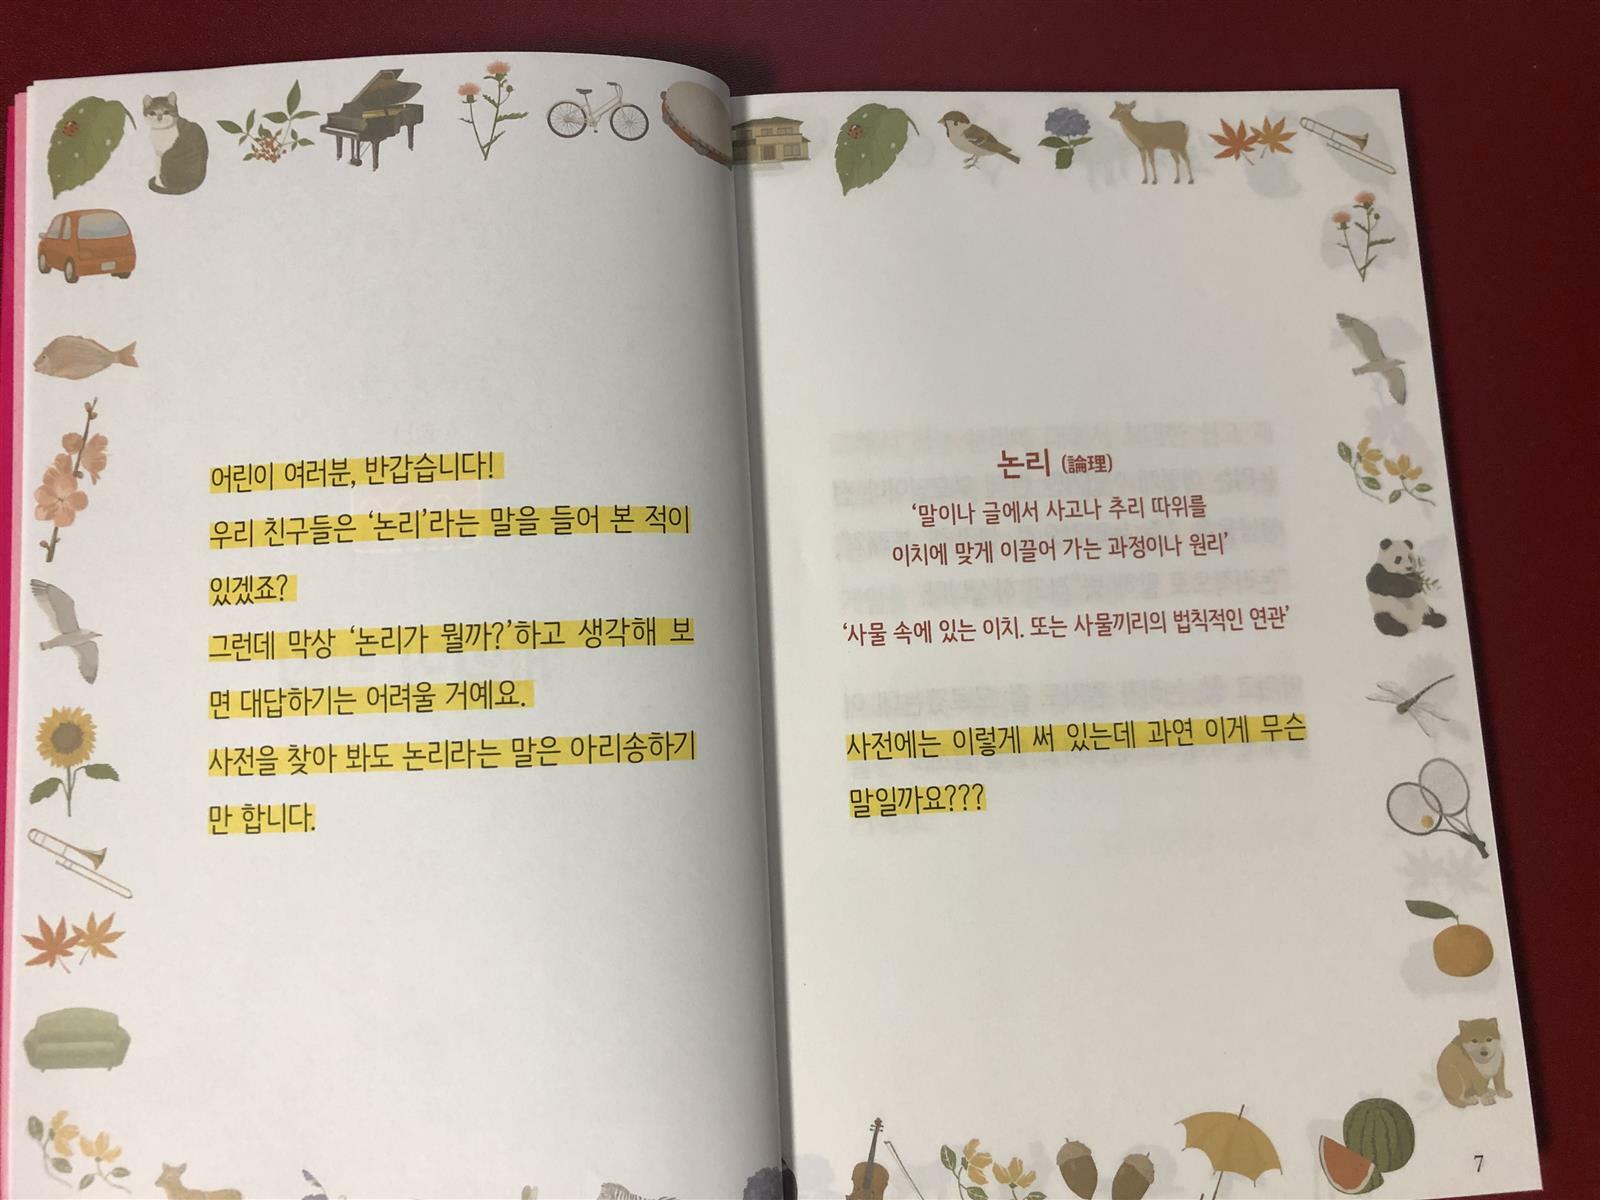 어린이 여러분, 반갑습니다!
우리 친구들은 ‘논리’라는 말을 들어 본 적이
있겠죠?
그런데 막상 ‘논리가 뭘까?’하고 생각해 보
면 대답하기는 어려울 거예요.
사전을 찾아 봐도 논리라는 말은 아리송하기
만 합니다.
논리 (論理)
‘말이나 글에서 사고나 추리 따위를
이치에 맞게 이끌어 가는 과정이나 원리’
‘사물 속에 있는 이치. 또는 사물끼리의 법칙적인 연관’
사전에는 이렇게 써 있는데 과연 이게 무슨
말일까요???
7